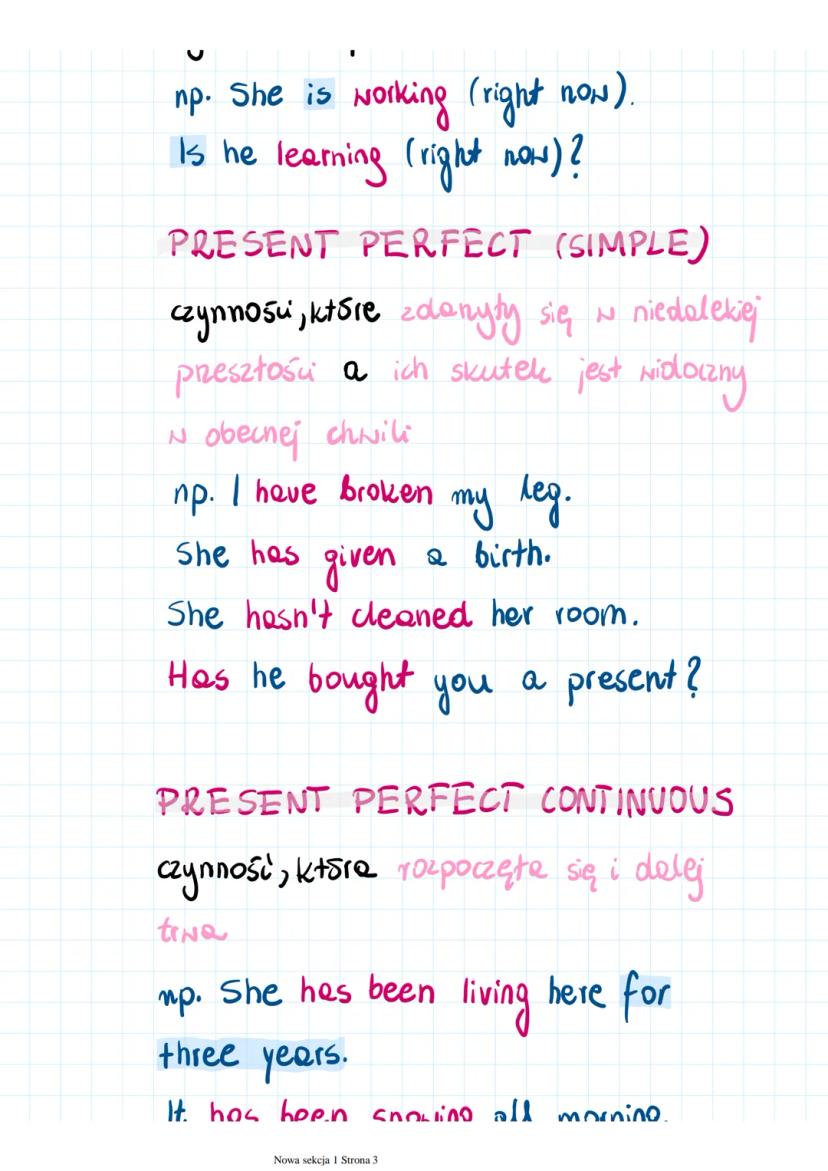 np. She is working (right now).
Is he learning (right now)?
PRESENT PERFECT (SIMPLE)
czynności, które zdarzyły się w niedalekiej
przeszłości a ich skutek jest widoczny
w obecnej chwili
np. I have broken my leg.
She has given a birth.
She hasn't cleaned her room.
Has he bought you a present?
PRESENT PERFECT CONTINUOUS
czynność, która rozpoczęła się i dalej
trwa
np. She has been living here for
three years.
It has been snowing all morning.
Nowa sekcja 1 Strona 3